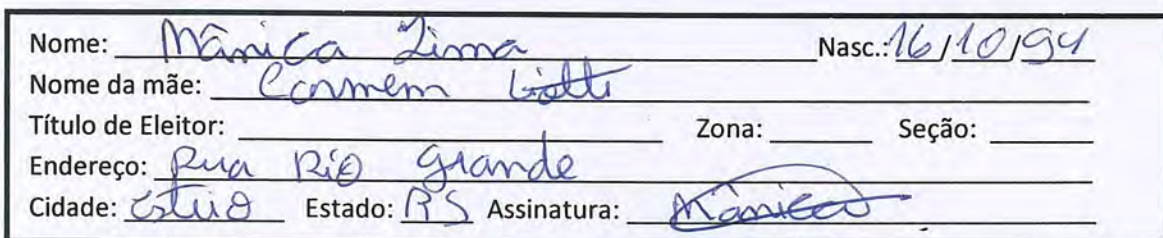 Nome: Mânica Lima Nasc.: 16/10/94
Nome da mãe: Carmem
Título de Eleitor: Zona: Seção:
Endereço: Rua Rio Grande
Cidade: Esteio Estado: RS Assinatura: Mânica